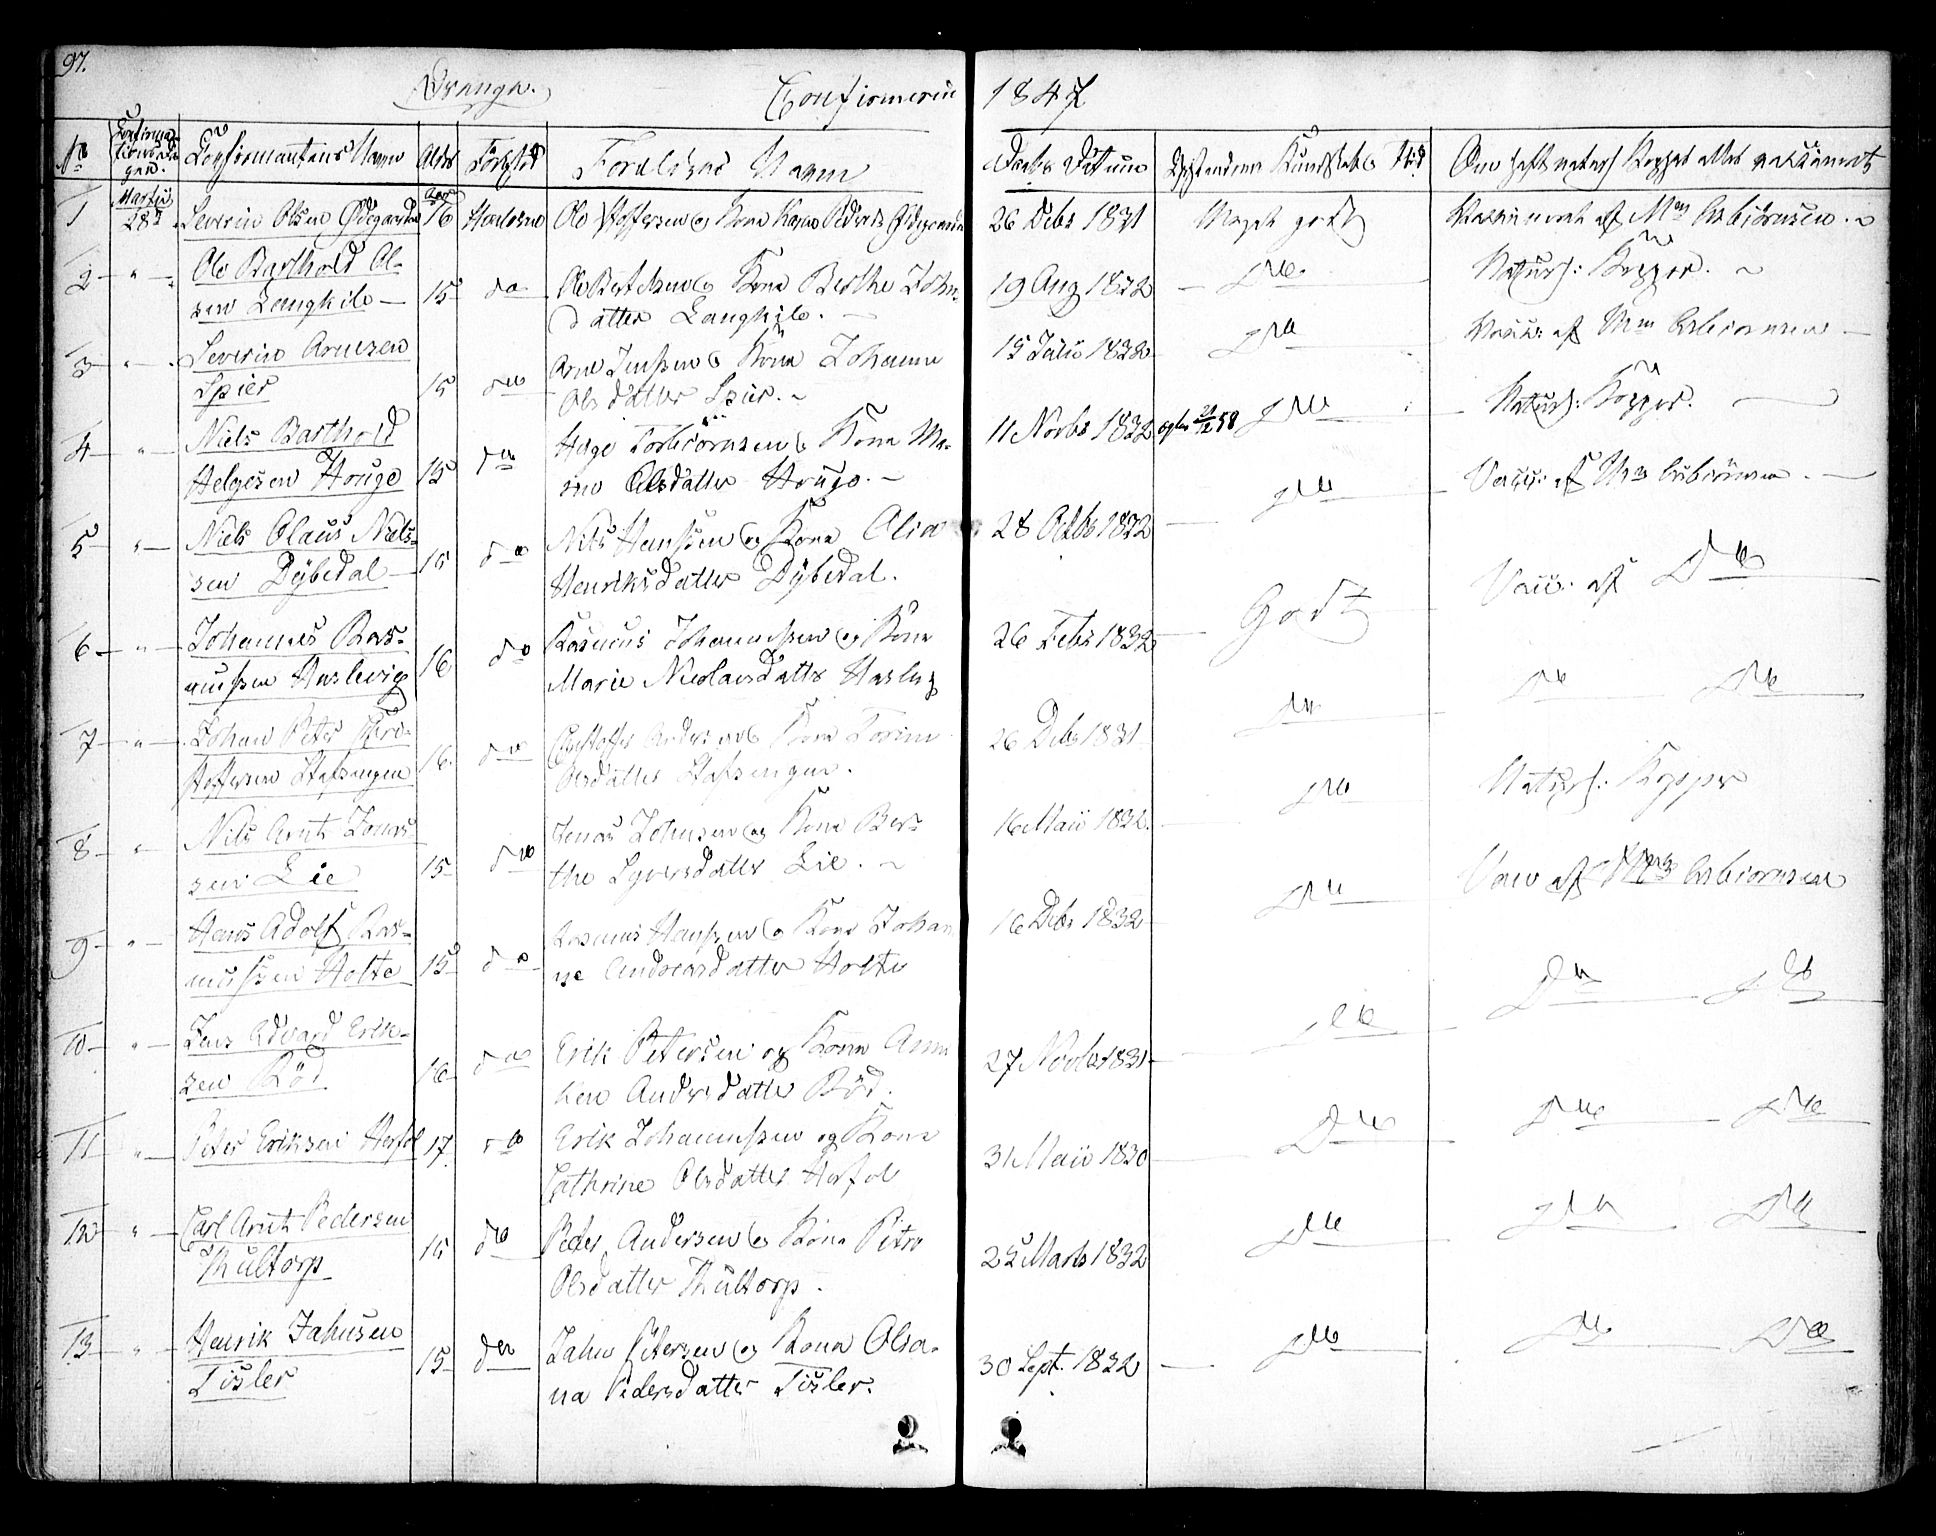 97.
Drænge. Confirmerede 1847
No Confirmationsdagen. Confirmantens Navn Alder Fødested Forældres Navn Daabs Datum Kundskabs Om haft naturl Kopper eller vakcineret
1 Martii 28de Severin Olsen Ødegaarden Aar 16 Ole Kona Karen Pedersd Ødegaarden 26 Debr 1831 Meget godt Vakcineret af Mm Asbiörnsen
2 " Ole Barthold Ol-
sen Langekile 15 do Ole Bertelsen og Kona Berthe John-
datter Langekile. 19 Aug 1832 Do Naturl: Kopper.
3 " Severin Arnesen
Spier 15 do Arne Jenssen og Kona Johanne
Olsdatter Spier. 15 Julii 1832 Do Vacc: af Mm Asbiörnsen
4 " Niels Barthold
Helgesen Houge 15 do Helge Torbiörnsen og Kona Ma-
ren Olsdatter Houge. 11 Novbr 1832 Do Naturl: Kopper.
5 " Niels Olaus Niels-
sen Dÿbedal 15 do Nils Hanssen og Kona Olia
Henriksdatter Dÿbedal. 28 Octbr 1832 Do Vacc: af Mm Asbiörnsen.
6 " Johannes Ras-
mussen Haslevig 16 do Rasmus Johannessen og Kona
Marie Nicolaisdatter Haslevig 26 Febr 1832 Godt Vacc: af Do
7 " Johan Peter Chri-
stoffersen Stafsengen 16. do Christoffer Andersen og Kona Torine
Olsdatter Stafsengen. 26 Debr 1831 Do Do Do
8 " Nils Arnt Jonas-
sen Lie 15 do Jonas Johnsen og Kona Ber-
the Syversdatter Lie. 16 Maii 1832. Do Naturl: Kopper
9 " Hans Adolf Ras-
mussen Holte 15 do Rasmus Hanssen og Kona Johan
ne Andreasdatter Holte 16 Debr 1832 Do Vacc af Mm Asbiörnsen
10 " Jens Edvard Erik-
sen Röd 16 do Erik Petersen og Kona Anne
Ken Andersdatter Röd. 27 Novbr 1831 Do Do Do
11 " Peter Eriksen Herföl 17. do Erik Johannessen og Kona
Cathrine Olsdatter Herföl 31 Maii 1830 Do Do Do
12 " Carl Arnt Pedersen
Thültorp 15 do Peder Andersen og Kona Petra
Olsdatter Thültorp. 25 Marts 1832 Do Do Do
13 " Henrik Jahnsen
Tisler 15 do Jahn Petersen og Kona Olea-
na Pedersdatter Tisler. 30 Sept. 1832 Do Do Do